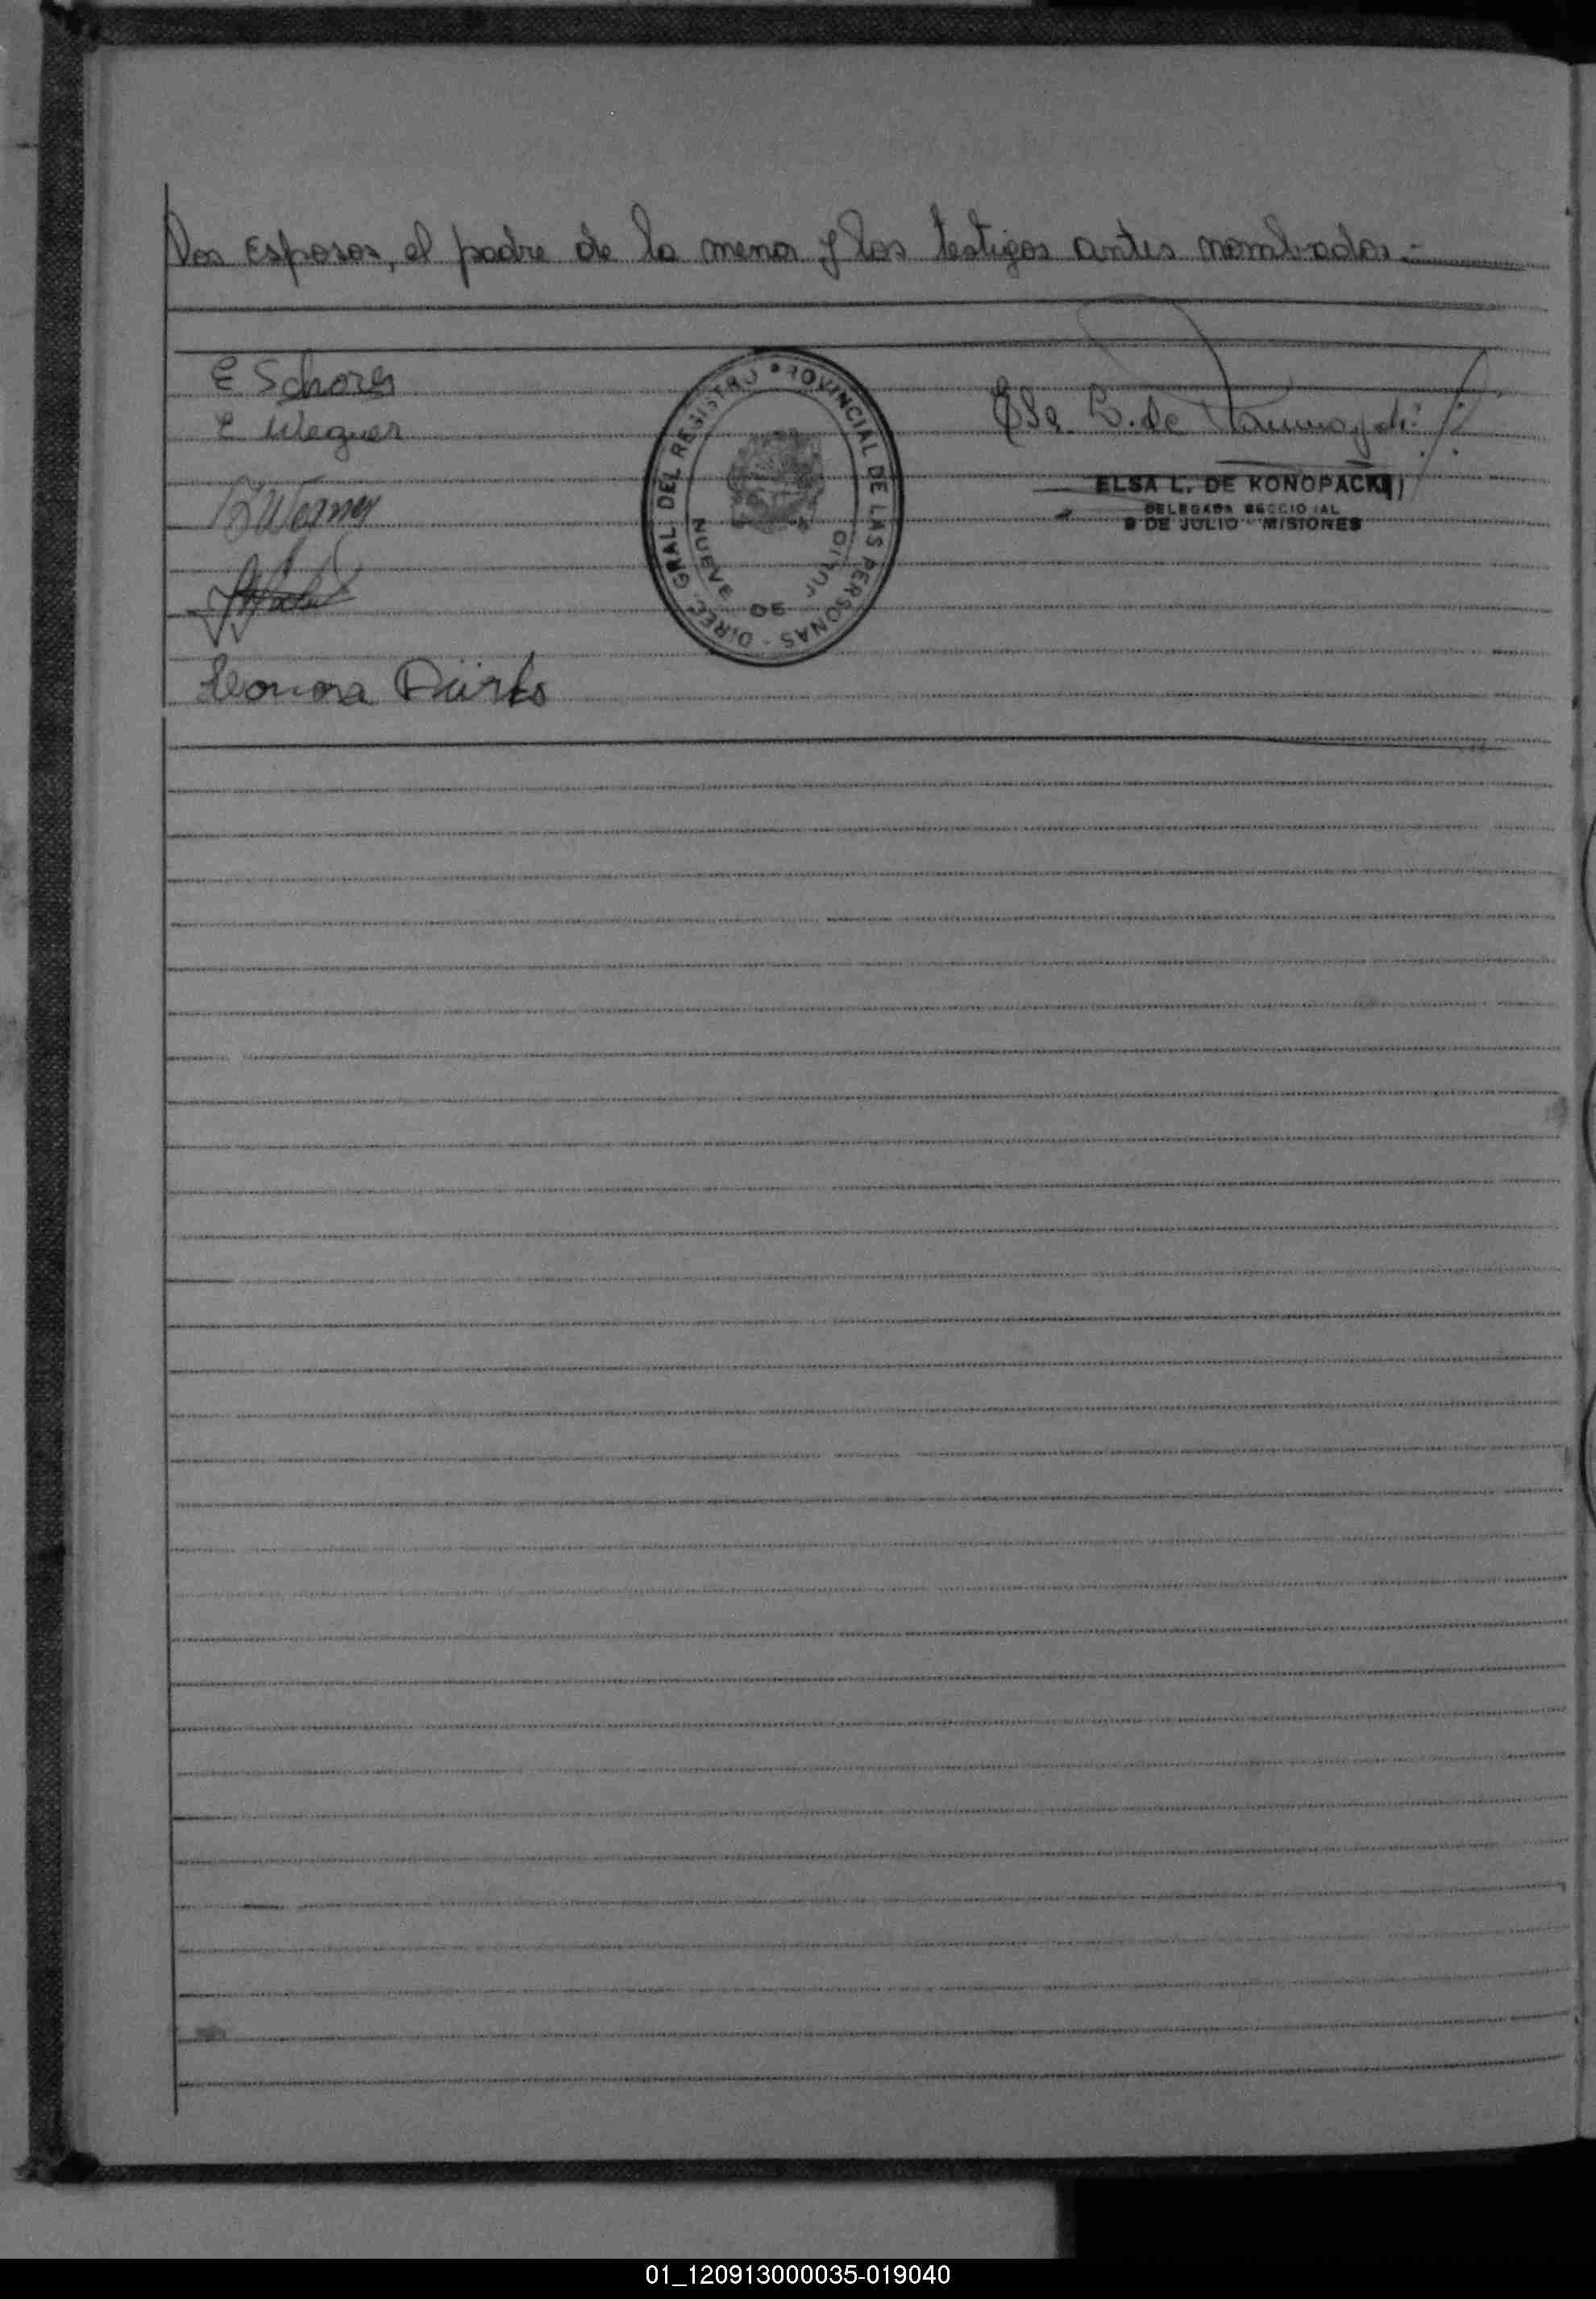 los Esposos, el padre de la menor y los testigos antes nombrados.-
E Schores
E Wegner
Leonora Dürks
DIREC. GRAL. DEL REGISTRO PROVINCIAL DE LAS PERSONAS -
NUEVE DE JULIO
Elsa L. de Konopacki
ELSA L. DE KONOPACKI
DELEGADA SECCIONAL
9 DE JULIO - MISIONES
01_120913000035-019040